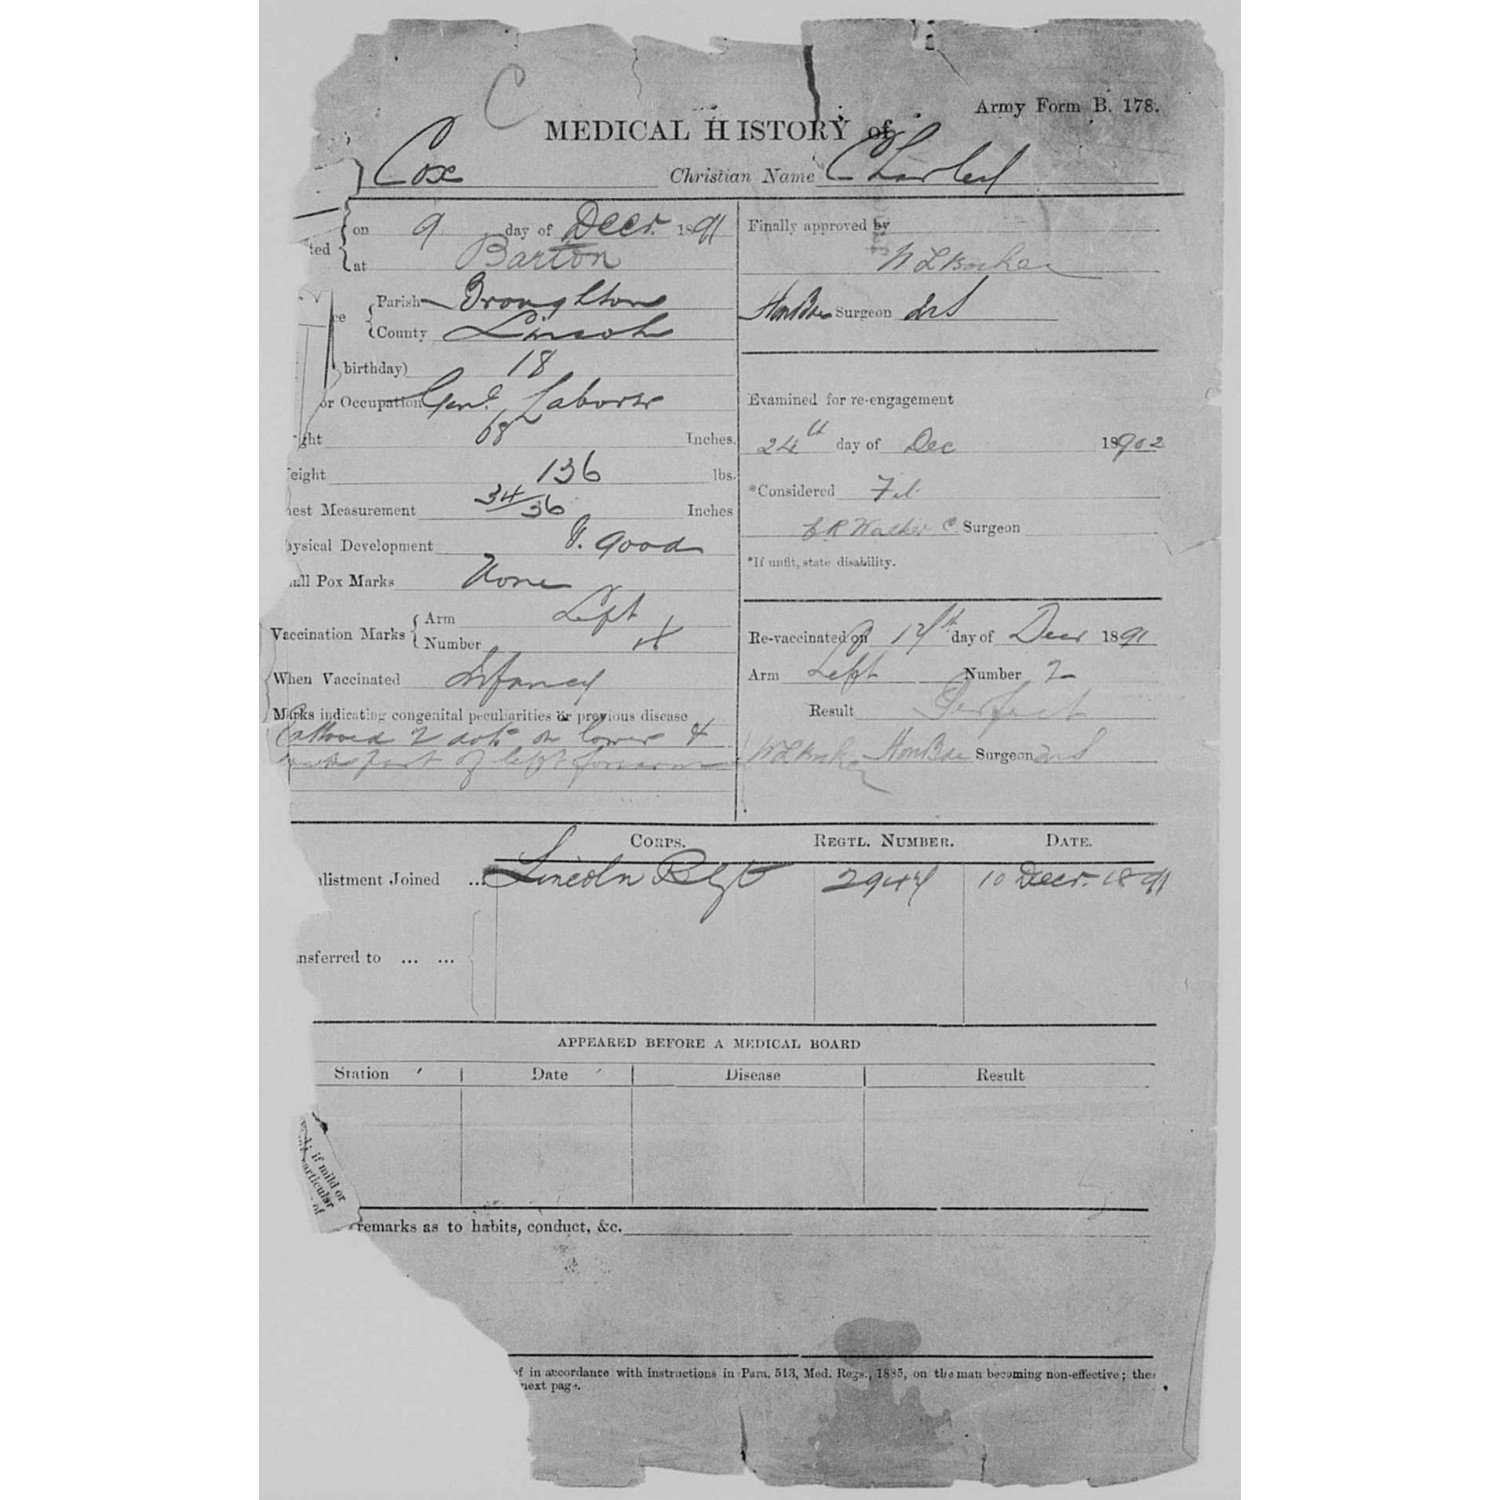 C
Army Form B. 178.
MEDICAL HISTORY of
Cox Christian Name Charles
on 9 day of Decr. 1891
ted
at Barton
Parish Broughton
ce
County Lincoln
birthday) 18
or Occupation Genl. Laborer
ght 68 Inches.
eight 136 lbs.
hest Measurement 34/36 Inches
hysical Development V. good
all Pox Marks None
Vaccination Marks Arm Left
Number 4
When Vaccinated Infancy
Marks indicating congenital peculiarities or previous disease
Tattooed 2 dots on lower &
part of left forearm
Finally approved by
Surgeon
Examined for re-engagement
24th day of Dec 1902
*Considered Fit
E R Walker C. Surgeon
*If unfit, state disability.
Re-vaccinated on 14th day of Decr 1891
Arm Left Number 2
Result Perfect
Surgeon
CORPS. REGTL. NUMBER. DATE.
listment Joined ... Lincoln Regt 2944 10 Decr. 1891
nsferred to ... ...
APPEARED BEFORE A MEDICAL BOARD
Station Date Disease Result
if mild or
articular
of
remarks as to habits, conduct, &c.
of in accordance with instructions in Para. 513, Med. Regs., 1885, on the man becoming non-effective; the
next page.